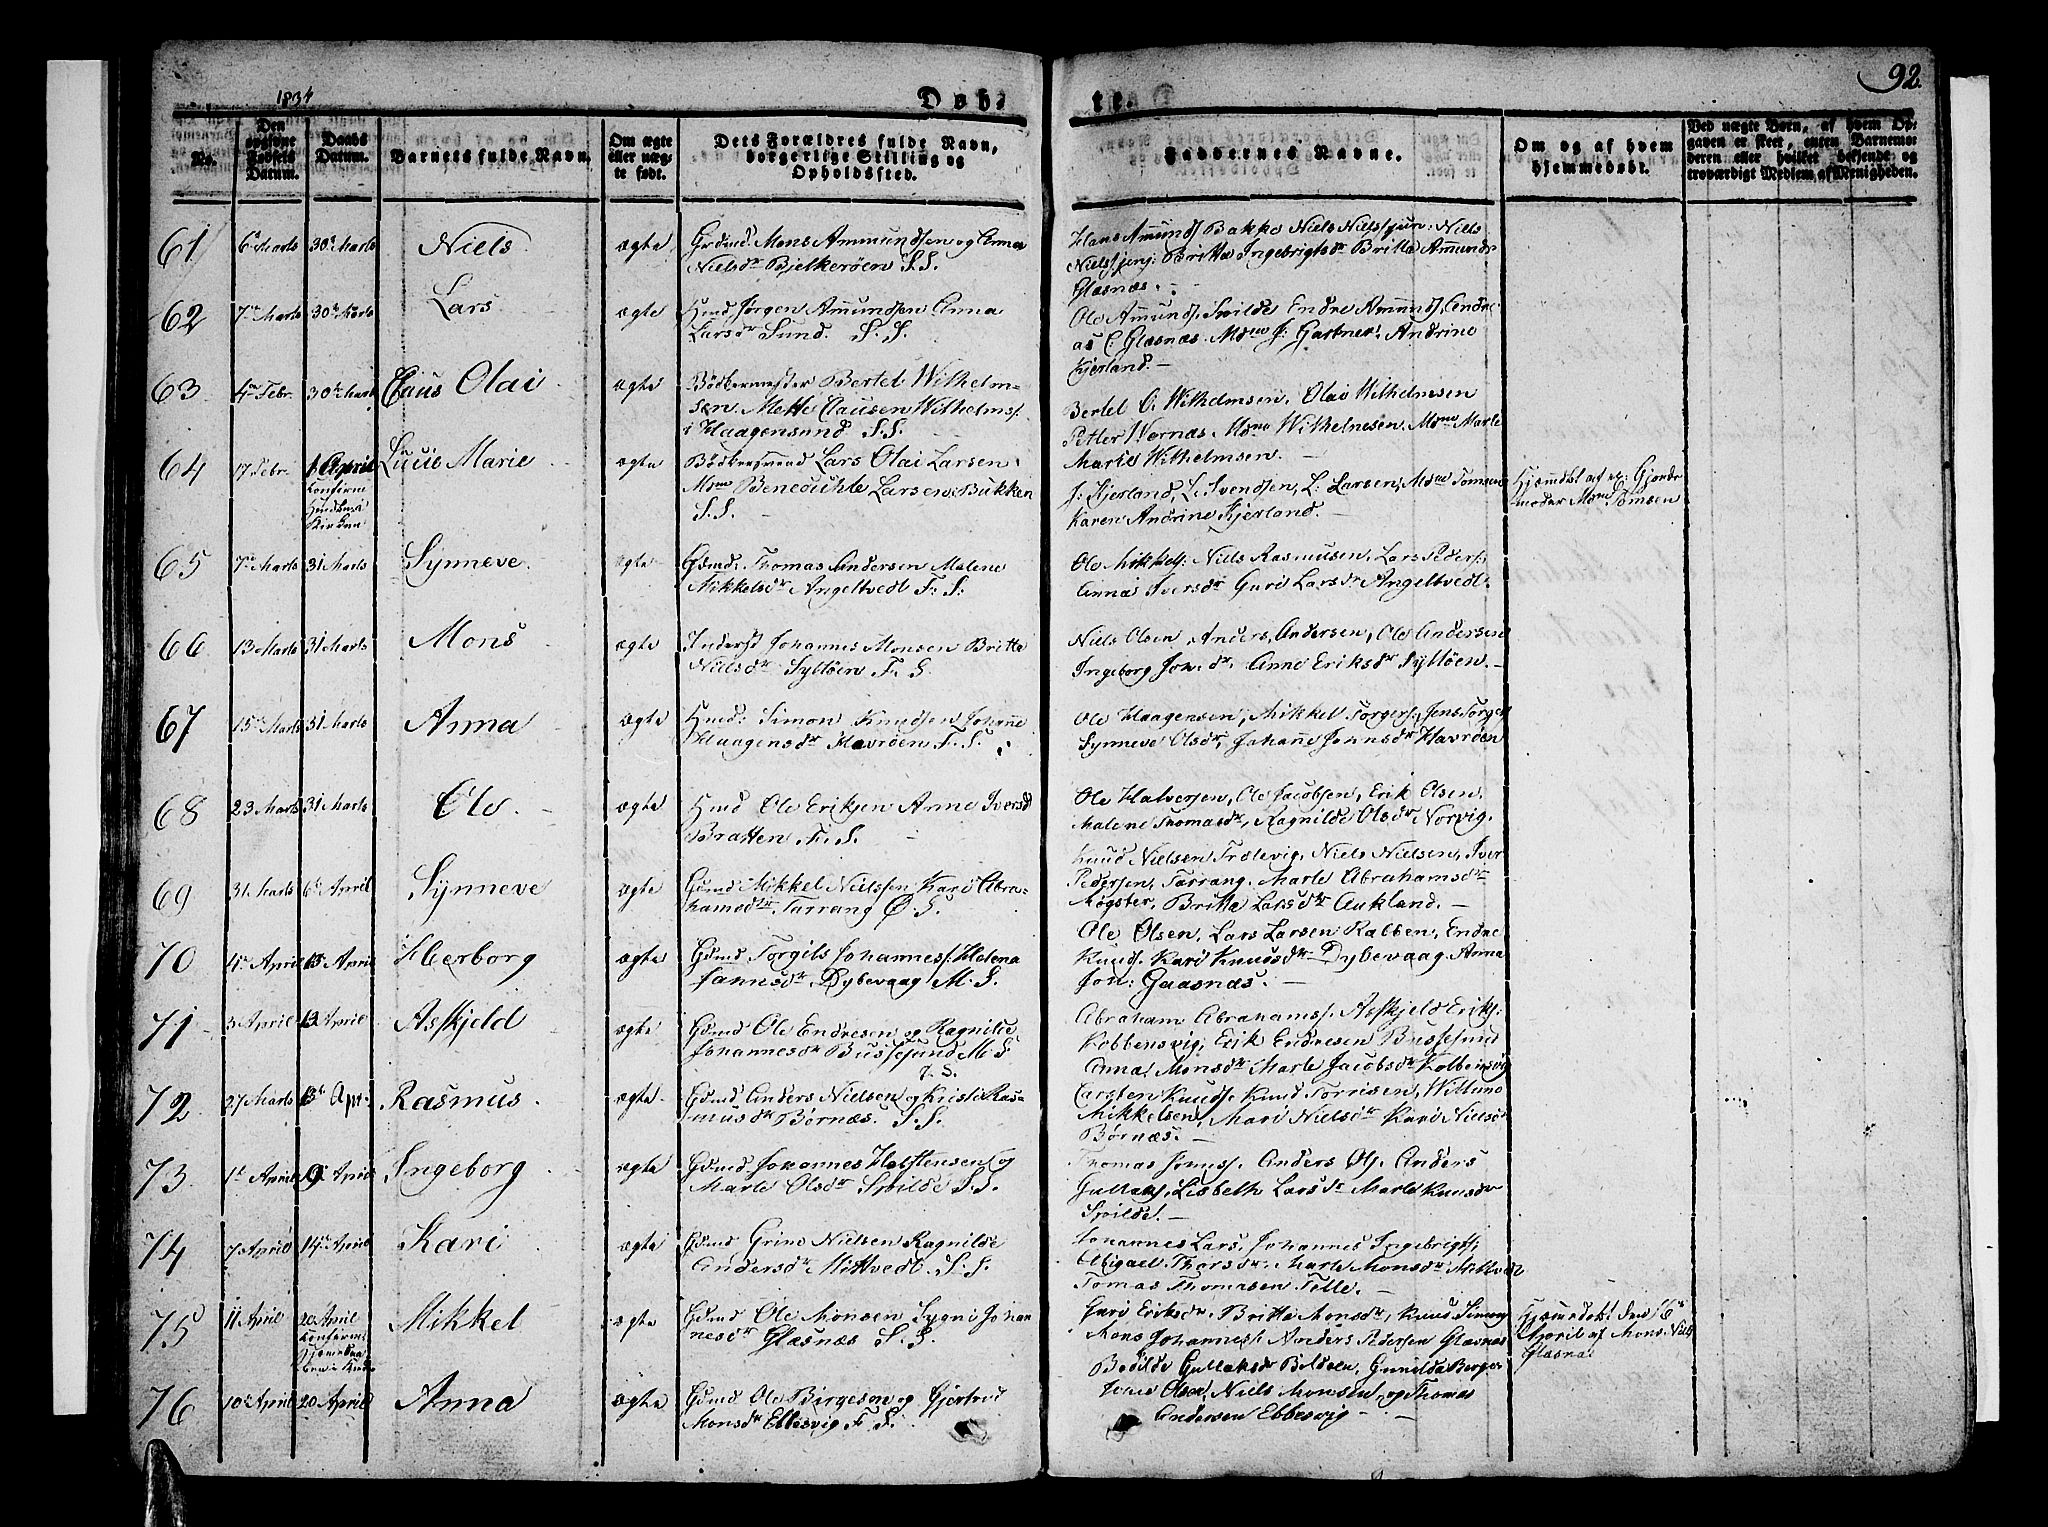 1834
Døb- te.
92.
No.
Den opgivne Fødsels Datum.
Daabs Datum.
Barnets fulde Navn.
Om ægte eller uægte født.
Dets Forældres fulde Navn, borgerlige Stilling og Opholdssted.
Faddernes Navne.
Om og af hvem hjemmedøbt.
Ved uægte Børn, af hvem Opgaven er skeet, enten Barnemoderen eller hvilket bekjendt og troværdigt Medlem af Menigheden.
61 6te Marts 30te Marts Niels ægte Grdmd: Mons Ammundsen og Anna
Nielsdr Bjelkerøen S.S.
Hans Amunds Bakke Niels Nielss jun: Niels
Nielss jenj: Britta Ingebrigtsdr Britta Amunds
Glæsnæs.
62 7de Marts 30te Marts Lars ægte Hmd Jørgen Amundsen Anna
Larsdr Sund. S.S.
Ole Amunds. Spilde Endre Amunds, Andre-
as C. Glæsnæs. Mdme J. Gartner, Andrine
Kjerland.
63 4de Febr. 30te Marts Claus Olai ægte Bödkermester Bertel Wilhelm-
sen Mette Clausen Wilhelms.
i Haagensund S.S.
Bertel O. Wilhelmsen, Olai Wilhelmsen
Petter Wernæs. Mdme Wilhelmsen, Mdme Marte
Marie Wilhelmsen.
64 17 Febr. 1 April Lucie Marie ægte Bödkersvend Lars Olai Larsen
Konfirme
Kirken
Mdme Benedichte Larsen Bukken
S.S.
J. Kjerland, L. Svendsen, L. Larsen, Mdme Tomsen
Karen Andrine Kjerland.
Hjemdøbt af Gjorde
moder Mdme Tomsen
65 7de Marts 31 Marts Synneve ægte Gdmd. Thomas Andersen Malene
Mikkelsdr Angeltvedt F. S.
Ole Mikkels: Niels Rasmusen, Lars Peders:
Anna Iversdr Guri Larsdr Angeltvedt.
66 13 Marts 31 Marts Mons ægte Inderst Johannes Monsen Britta
Nielsdr Syltöen F. S.
Niels Olsen Anders Andersen, Ole Andersen
Ingeborg Joh. dr. Anne Eriksdr Syltöen.
67 15de Marts 31 Marts Anna ægte Hmd: Simon Knudsen Johanne
Haagensdr Havröen F. S.
Ole Haagensen, Mikkel Torgers, Jens Torgers
Synneve Olsdr, Johanne Johnsdr Havröen
68 23 Marts 31 Marts Ole ægte Hmd Ole Eriksen Anne Iversd
Bratten F. S.
Ole Halversen, Ole Jacobsen, Erik Olsen
Malene Thomasdr, Ragnilde Olsdr Norvig.
69 31. Marts 6te April Synneve ægte Gdmd Mikkel Nielssen Kari Abra-
hamsdr. Tarrang Ø. S.
Knud Nielsen Trælevig, Niels Nielsen, Iver
Pedersen, Tarrang. Marte Abrahamsdr
Møgster, Britta Larsdr Aukland.
70 4de April 13 April Herborg ægte Gdmd Torgils Johannes. Helena
Jannesdr. Dybevaag M. S.
Ole Olsen, Lars Larsen Rabben, Endre
Knuds. Kari Knudsdr Dybevaag. Anna
Jon: Gaasnæs.
71 3 April 13 April Asskjeld ægte Gdmd Ole Endresen og Ragnilde
Johannesdr Bussesund M. S.
Abraham Abrahams. Asskjeld Eriks.
Kobbensvig, Erik Endresen Bussesund
Anna Monsdr Marte Jacobsdr Kolbensvig
72 27 Marts 13de Apr. Rasmus ægte Gdmd Anders Nielsen og Kristi Ras-
musdr Børnæs. S.S.
Carsten Knuds. Knud Torrisen,
Mikkelsen, Mari Nielsdr Kari Nielsd
Børnæs.
73 1te April April Ingeborg ægte Gdmd Johannes Holstensen og
Marte Olsdr Spilde S.S.
Thomas Johns. Anders Ols. Anders
Gullaks, Lisbeth Larsdr Marte Knudsdr
Spilde.
74 7de April 14de April Kari ægte Gdmd Grine Nielsen Ragnilde
Andersdr Midtvedt. S.S.
Johannes Lars. Johannes Ingebrigts,
Abigael Thorsdr. Marte Monsdr Midtvedt
Tomas Thomasen Telle.
75 11 April 20 April Mikkel ægte Gdmd Ole Monsen Sygni Johan-
Konfirm:
nesdr Glæsnæs S. S.
Guri Eriksdr. Britta Monsdr, Knud Simons
Mons Johannes. Anders Pedersen Glæsnæs
Hjemmedøbt den 16de
April af Mons Niels
Glæsnæs
76 10de April 20 April Anna ægte Gdmd Ole Birgesen og Gjertrud
Monsdr Ebbesvig F. S.
Bodilde Gullaksdr Gunilda Berges
Olsen, Niels Monsen og Thomas
Andersen Ebbesvig